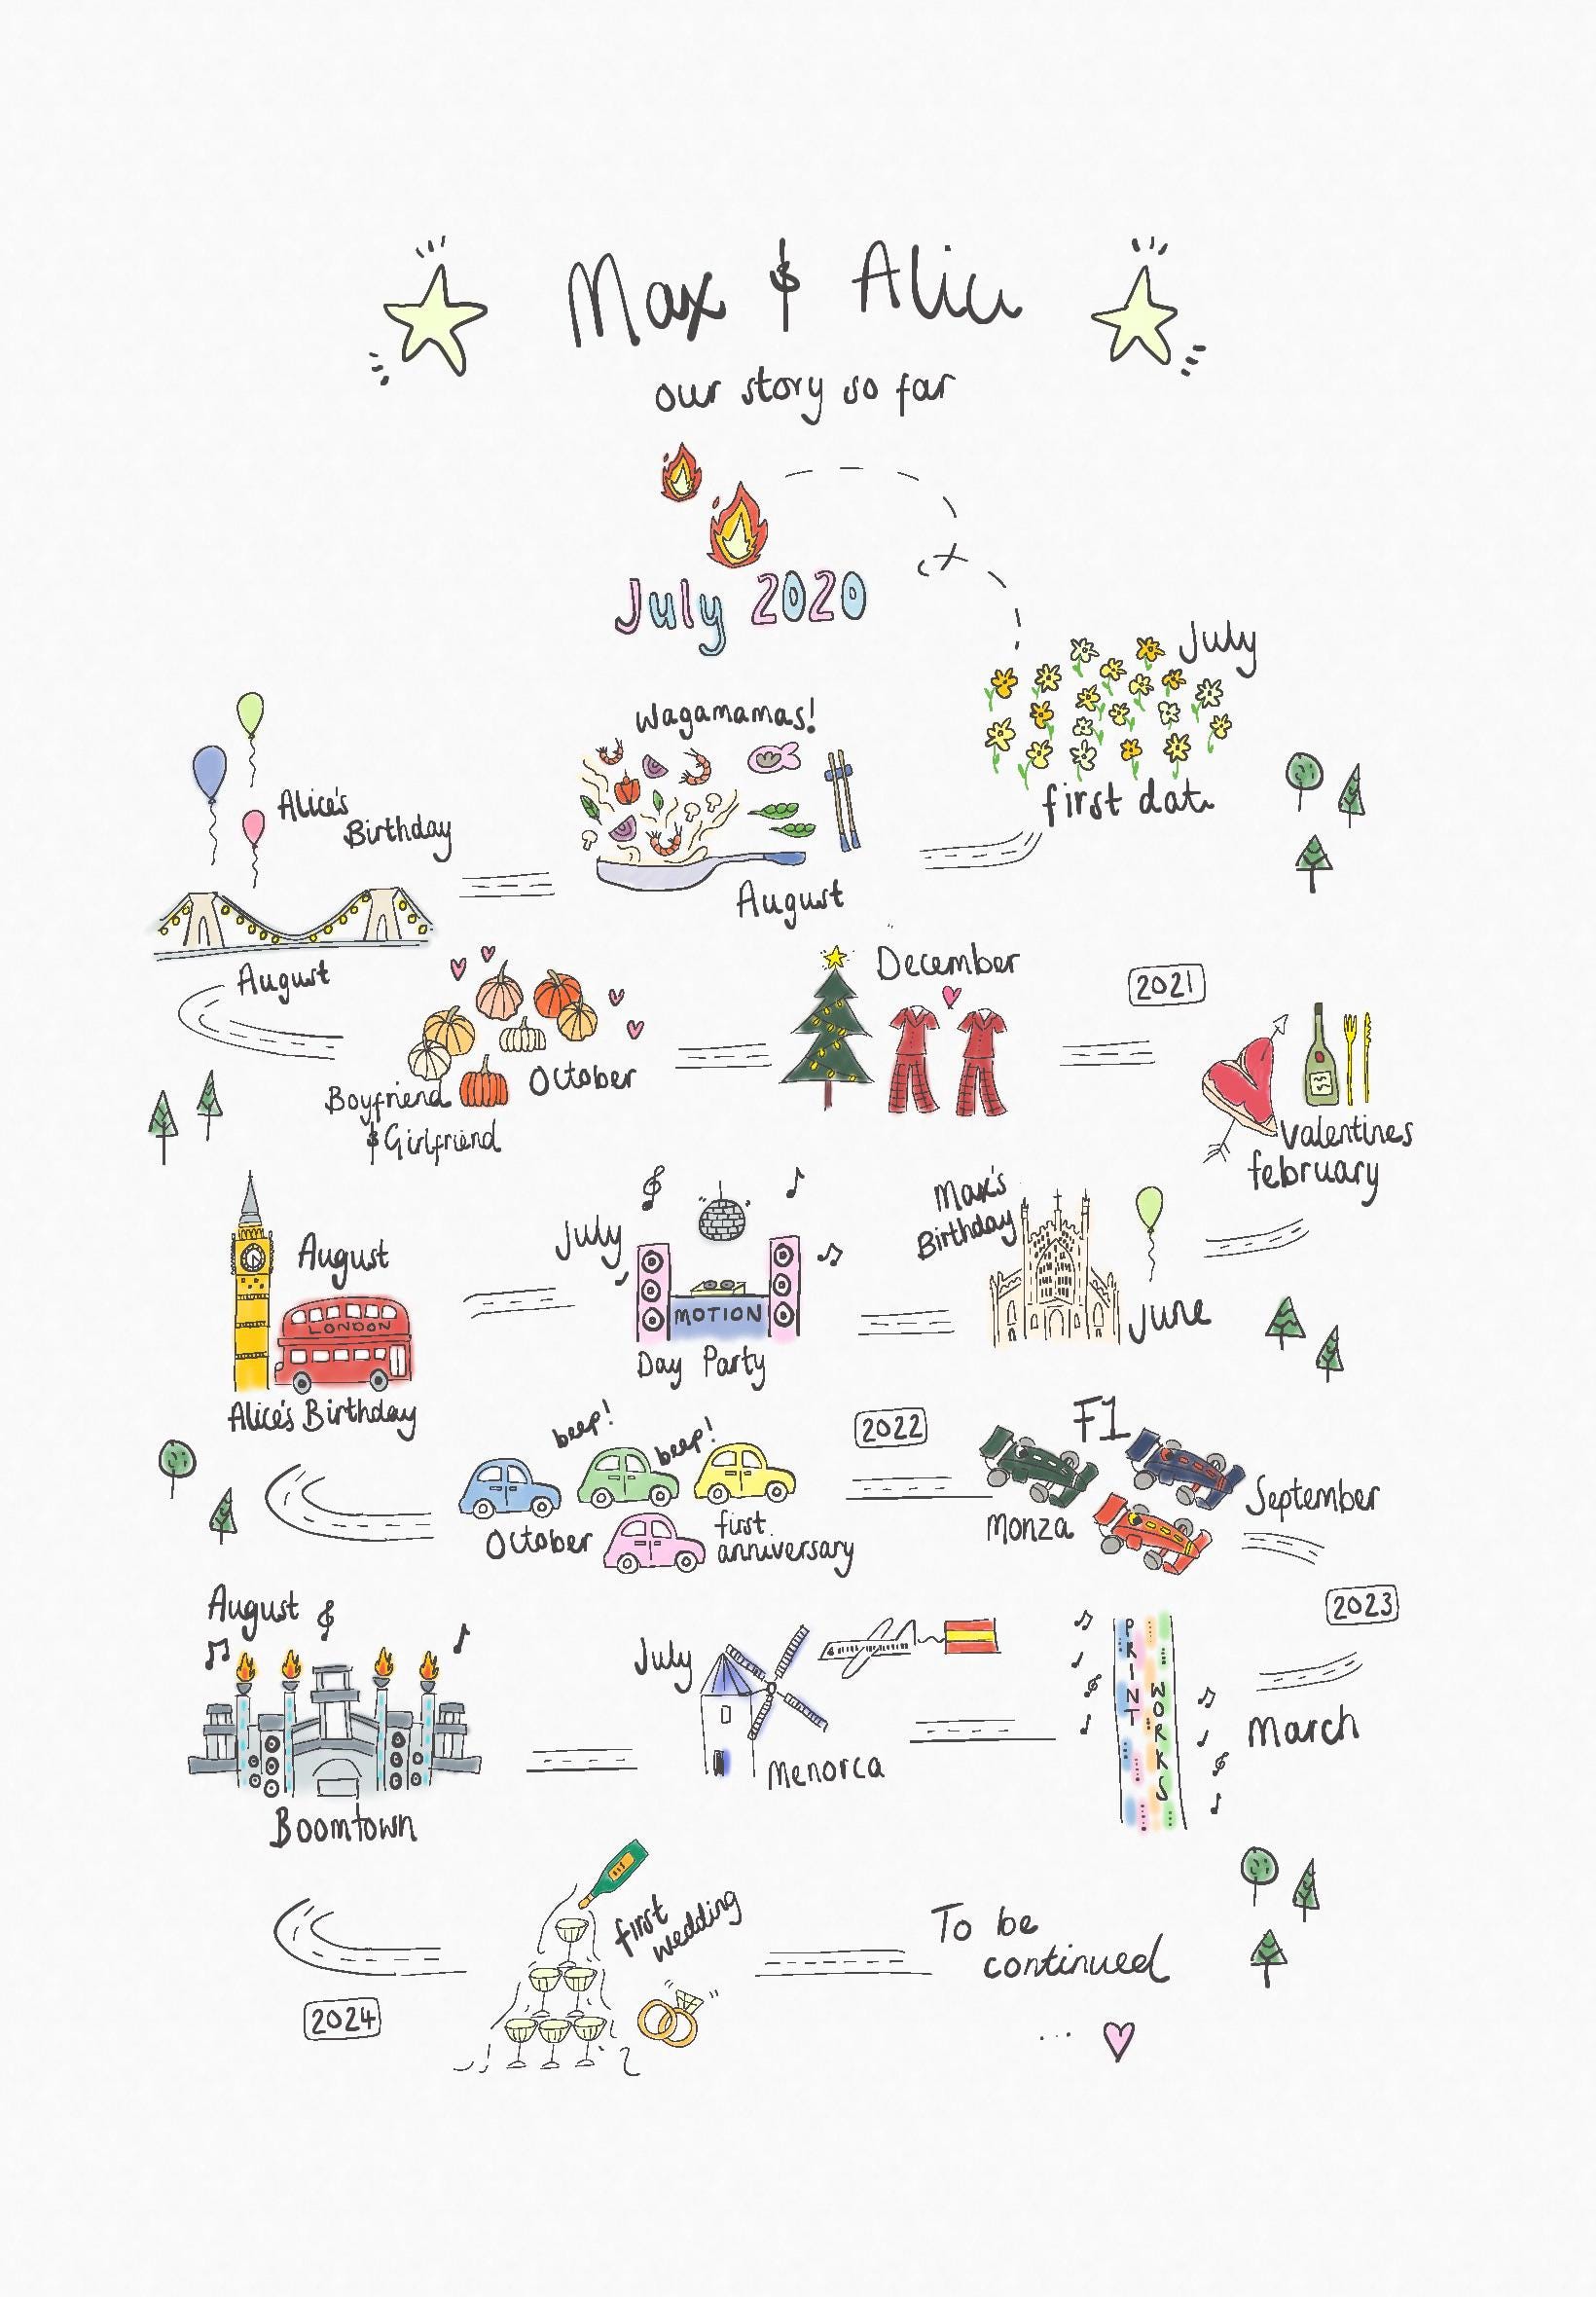 Max & Alice
our story so far
July 2020
July
first date
Wagamamas!
August
Alice's
Birthday
August
Boyfriend
& Girlfriend
October
December
2021
Valentines
february
Max's
Birthday
June
July
MOTION
Day Party
August
LONDON
Alice's Birthday
beep!
beep!
October
first
anniversary
2022
F1
Monza
September
2023
March
PRINT
WORKS
July
Menorca
August
Boomtown
2024
first
wedding
To be
continued
...